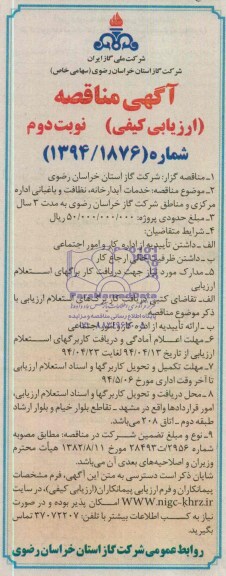 شرکت ملی گاز ایران
شرکت گاز استان خراسان رضوی (سهامی خاص)
آگهی مناقصه
(ارزیابی کیفی) نوبت دوم
شماره (۱۳۹۴/۱۸۷۶)
۱-مناقصه گزار: شرکت گاز استان خراسان رضوی
۲-موضوع مناقصه: خدمات آبدارخانه، نظافت و باغبانی اداره
مرکزی و مناطق شرکت گاز خراسان رضوی به مدت ۳ سال
۳-مبلغ حدودی پروژه: ۵۰/۰۰۰/۰۰۰/۰۰۰ ریال
۴-شرایط متقاضیان:
الف-داشتن تأییدیه از اداره کار و امور اجتماعی
ب-داشتن ظرفیت ارجاع کار
۵-مدارک مورد نیاز جهت دریافت کاربرگهای استعلام
ارزیابی
الف-تقاضای کتبی برگهای استعلام ارزیابی با
ذکر موضوع مناقصه
ب-ارائه تأییدیه از اداره کار و امور اجتماعی
۶-مهلت اعلام آمادگی و دریافت کاربرگهای استعلام
ارزیابی از تاریخ ۹۴/۰۴/۱۳ لغایت ۹۴/۰۴/۲۳
۷-مهلت تکمیل و تحویل کاربرگها و اسناد استعلام ارزیابی:
تا آخر وقت اداری مورخ ۹۴/۵/۰۶
۸-محل دریافت و تحویل کاربرگها و اسناد استعلام ارزیابی:
امور قراردادها واقع در مشهد-تقاطع بلوار خیام و بلوار ارشاد
طبقه دوم-اتاق ۲۰۸ می باشد.
۹-نوع و مبلغ تضمین شرکت در مناقصه: مطابق مصوبه
شماره ۲۸۴۹۳ت۲۹۵۶ مورخ ۱۳۸۲/۸/۱۱ هیأت محترم
وزیران و اصلاحیه های بعدی آن می باشد.
شایان ذکر است دسترسی به متن این آگهی، فرم مشخصات
پیمانکاران و فرم ارزیابی پیمانکاران(ارزیابی کیفی)، در سایت
WWW.nigc-khrz.ir امکان پذیر بوده و در صورت
نیاز به کسب اطلاعات بیشتر با تلفن: ۳۷۰۷۲۲۰۷ تماس
بگیرید.
روابط عمومی شرکت گاز استان خراسان رضوی